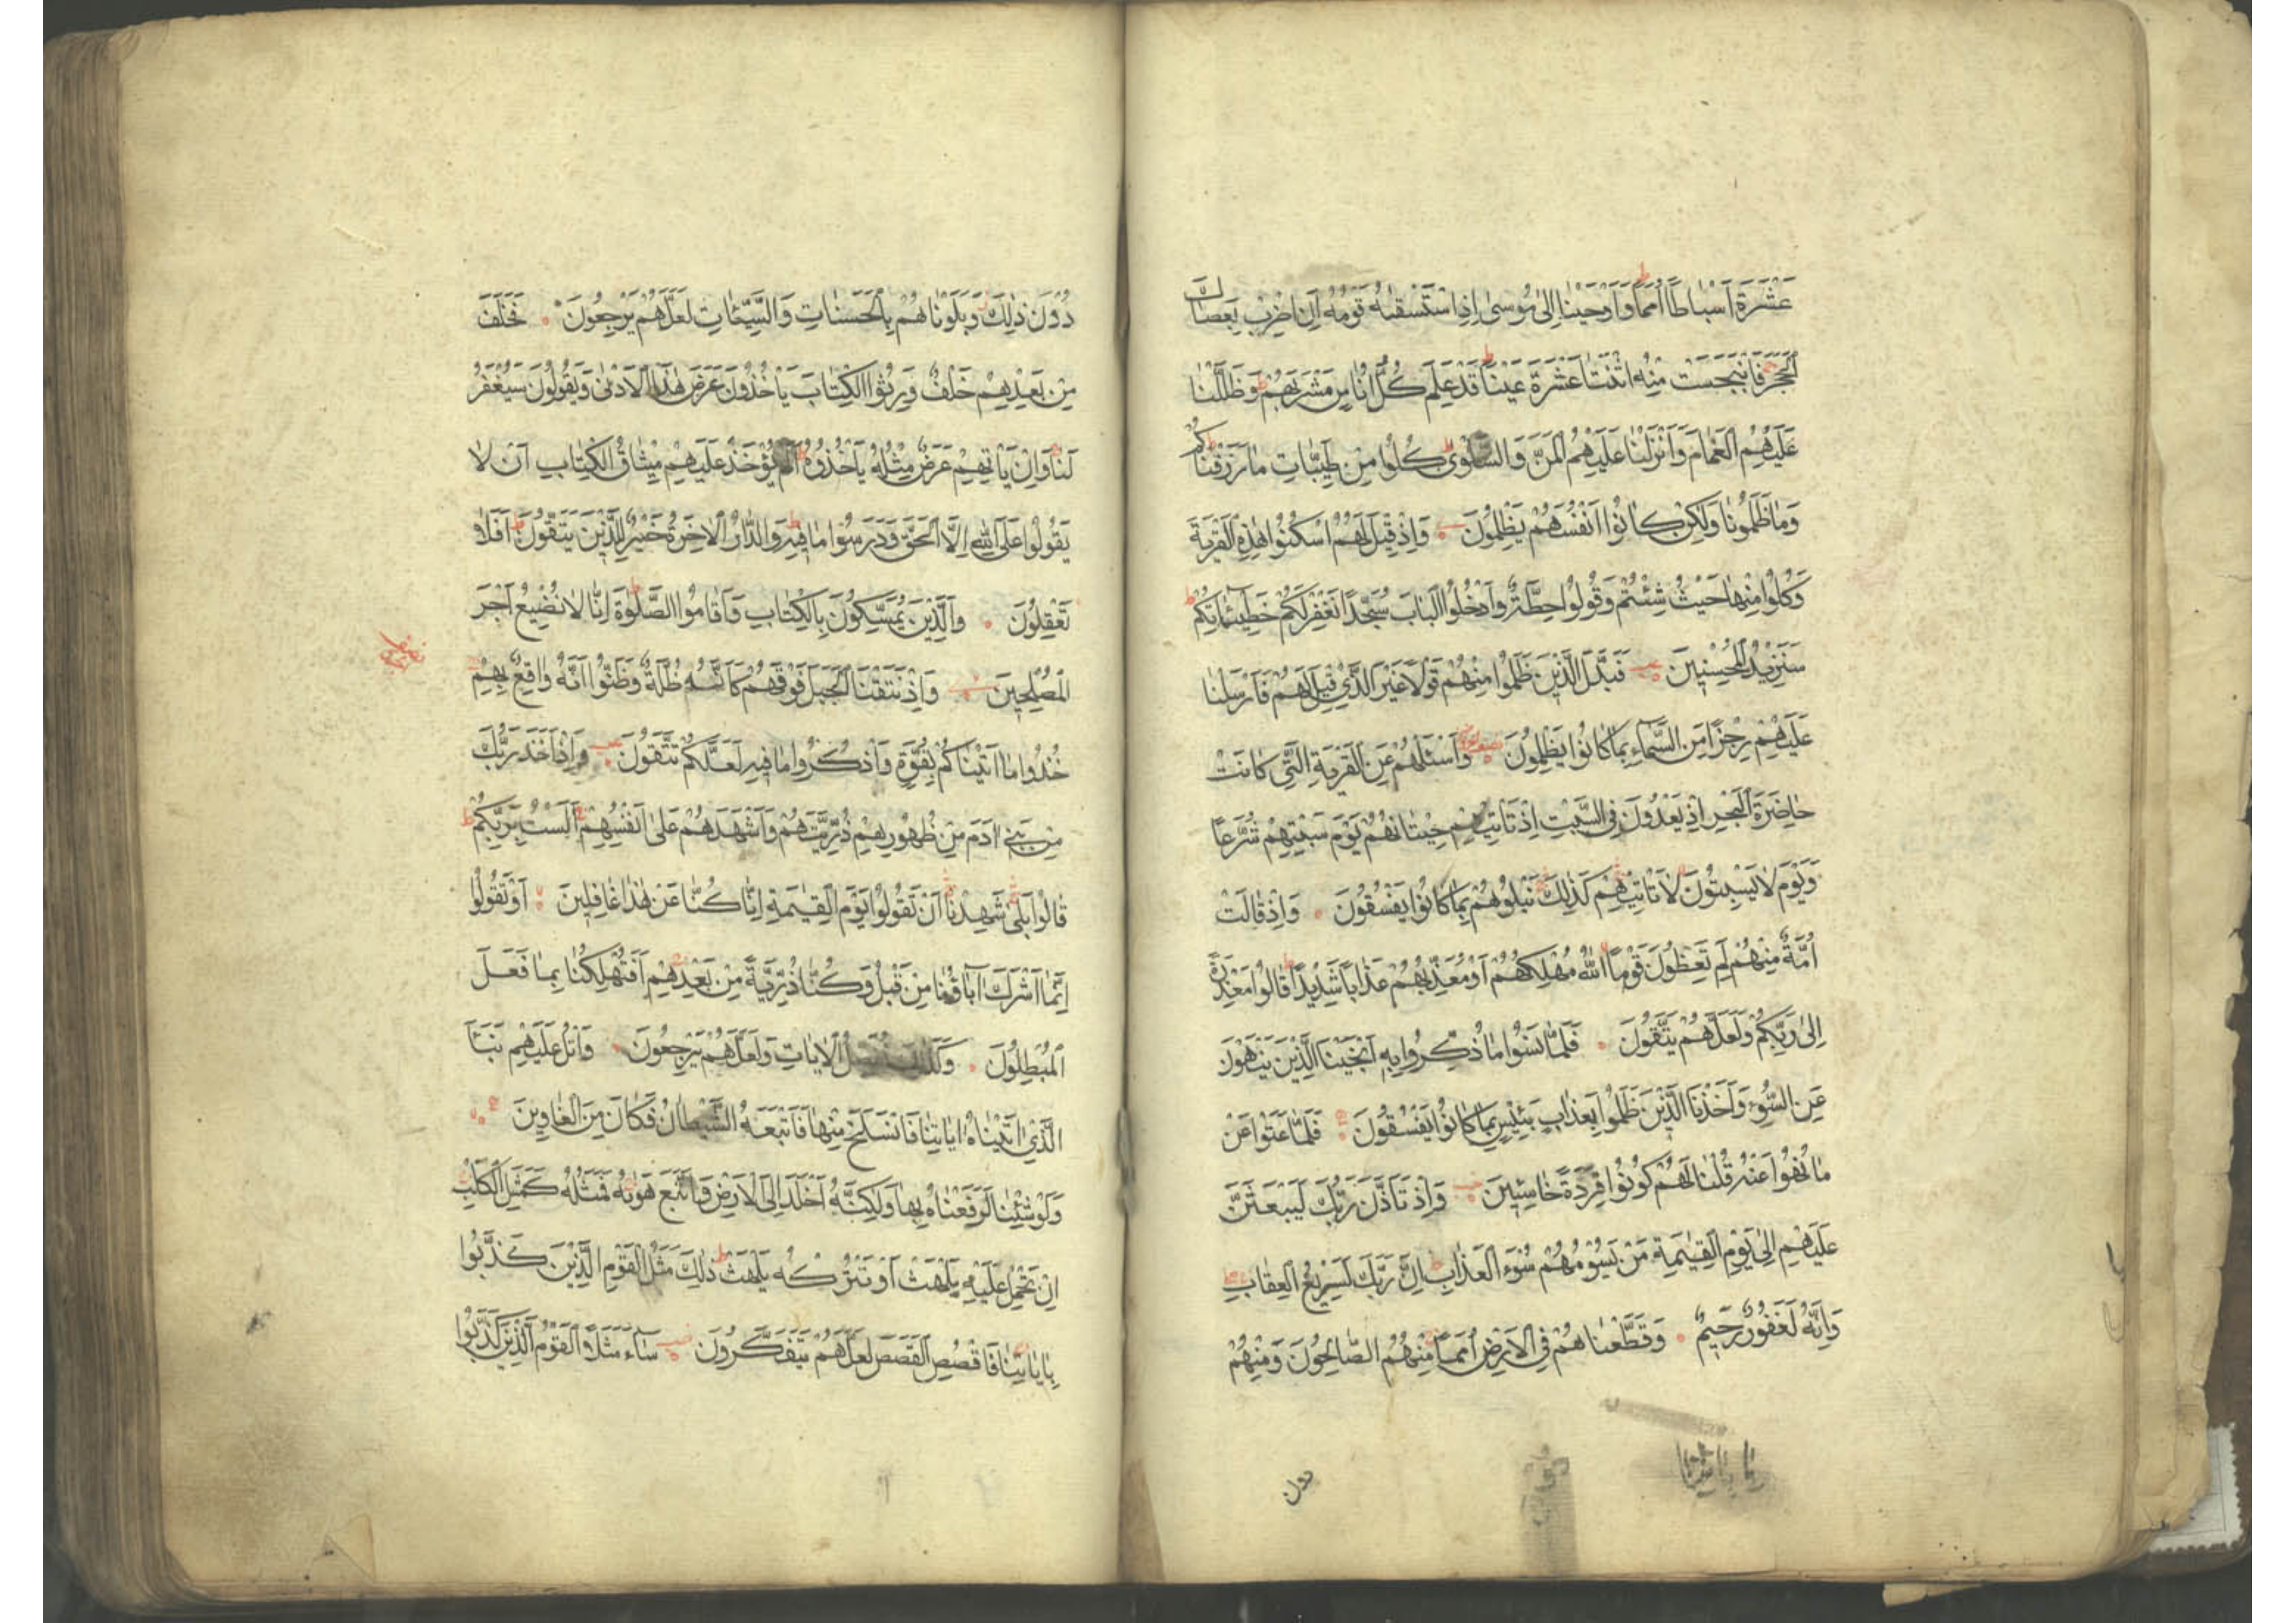 عَشْرَةَ اَسْبَاطًا اُمَمًا وَاَوْحَيْنَا اِلٰى مُوسٰى اِذِ اسْتَسْقٰىهُ قَوْمُهُ اَنِ اضْرِبْ بِعَصَاكَ
الْحَجَرَ فَانْبَجَسَتْ مِنْهُ اثْنَتَا عَشْرَةَ عَيْنًا قَدْ عَلِمَ كُلُّ اُنَاسٍ مَشْرَبَهُمْ وَظَلَّلْنَا
عَلَيْهِمُ الْغَمَامَ وَاَنْزَلْنَا عَلَيْهِمُ الْمَنَّ وَالسَّلْوٰى كُلُوا مِنْ طَيِّبَاتِ مَا رَزَقْنَاكُمْ
وَمَا ظَلَمُونَا وَلٰكِنْ كَانُوا اَنْفُسَهُمْ يَظْلِمُونَ وَاِذْ قِيلَ لَهُمُ اسْكُنُوا هٰذِهِ الْقَرْيَةَ
وَكُلُوا مِنْهَا حَيْثُ شِئْتُمْ وَقُولُوا حِطَّةٌ وَادْخُلُوا الْبَابَ سُجَّدًا نَغْفِرْ لَكُمْ خَطِيئَاتِكُمْ
سَنَزِيدُ الْمُحْسِنِينَ فَبَدَّلَ الَّذِينَ ظَلَمُوا مِنْهُمْ قَوْلًا غَيْرَ الَّذِي قِيلَ لَهُمْ فَاَرْسَلْنَا
عَلَيْهِمْ رِجْزًا مِنَ السَّمَاءِ بِمَا كَانُوا يَظْلِمُونَ وَاسْئَلْهُمْ عَنِ الْقَرْيَةِ الَّتِي كَانَتْ
حَاضِرَةَ الْبَحْرِ اِذْ يَعْدُونَ فِي السَّبْتِ اِذْ تَاْتِيهِمْ حِيتَانُهُمْ يَوْمَ سَبْتِهِمْ شُرَّعًا
وَيَوْمَ لَا يَسْبِتُونَ لَا تَاْتِيهِمْ كَذٰلِكَ نَبْلُوهُمْ بِمَا كَانُوا يَفْسُقُونَ وَاِذْ قَالَتْ
اُمَّةٌ مِنْهُمْ لِمَ تَعِظُونَ قَوْمًا اللّٰهُ مُهْلِكُهُمْ اَوْ مُعَذِّبُهُمْ عَذَابًا شَدِيدًا قَالُوا مَعْذِرَةً
اِلٰى رَبِّكُمْ وَلَعَلَّهُمْ يَتَّقُونَ فَلَمَّا نَسُوا مَا ذُكِّرُوا بِهِ اَنْجَيْنَا الَّذِينَ يَنْهَوْنَ
عَنِ السُّوءِ وَاَخَذْنَا الَّذِينَ ظَلَمُوا بِعَذَابٍ بَئِيسٍ بِمَا كَانُوا يَفْسُقُونَ فَلَمَّا عَتَوْا عَنْ
مَا نُهُوا عَنْهُ قُلْنَا لَهُمْ كُونُوا قِرَدَةً خَاسِئِينَ وَاِذْ تَاَذَّنَ رَبُّكَ لَيَبْعَثَنَّ
عَلَيْهِمْ اِلٰى يَوْمِ الْقِيٰمَةِ مَنْ يَسُومُهُمْ سُوءَ الْعَذَابِ اِنَّ رَبَّكَ لَسَرِيعُ الْعِقَابِ
وَاِنَّهُ لَغَفُورٌ رَحِيمٌ وَقَطَّعْنَاهُمْ فِي الْاَرْضِ اُمَمًا مِنْهُمُ الصَّالِحُونَ وَمِنْهُمْ
دون
دُونَ ذٰلِكَ وَبَلَوْنَاهُمْ بِالْحَسَنَاتِ وَالسَّيِّئَاتِ لَعَلَّهُمْ يَرْجِعُونَ فَخَلَفَ
مِنْ بَعْدِهِمْ خَلْفٌ وَرِثُوا الْكِتَابَ يَاْخُذُونَ عَرَضَ هٰذَا الْاَدْنٰى وَيَقُولُونَ سَيُغْفَرُ
لَنَا وَاِنْ يَاْتِهِمْ عَرَضٌ مِثْلُهُ يَاْخُذُوهُ اَلَمْ يُؤْخَذْ عَلَيْهِمْ مِيثَاقُ الْكِتَابِ اَنْ لَا
يَقُولُوا عَلَى اللّٰهِ اِلَّا الْحَقَّ وَدَرَسُوا مَا فِيهِ وَالدَّارُ الْاٰخِرَةُ خَيْرٌ لِلَّذِينَ يَتَّقُونَ اَفَلَا
تَعْقِلُونَ وَالَّذِينَ يُمَسِّكُونَ بِالْكِتَابِ وَاَقَامُوا الصَّلٰوةَ اِنَّا لَا نُضِيعُ اَجْرَ
الْمُصْلِحِينَ وَاِذْ نَتَقْنَا الْجَبَلَ فَوْقَهُمْ كَاَنَّهُ ظُلَّةٌ وَظَنُّوا اَنَّهُ وَاقِعٌ بِهِمْ
خُذُوا مَا اٰتَيْنَاكُمْ بِقُوَّةٍ وَاذْكُرُوا مَا فِيهِ لَعَلَّكُمْ تَتَّقُونَ وَاِذْ اَخَذَ رَبُّكَ
مِنْ بَنِي اٰدَمَ مِنْ ظُهُورِهِمْ ذُرِّيَّتَهُمْ وَاَشْهَدَهُمْ عَلٰى اَنْفُسِهِمْ اَلَسْتُ بِرَبِّكُمْ
قَالُوا بَلٰى شَهِدْنَا اَنْ تَقُولُوا يَوْمَ الْقِيٰمَةِ اِنَّا كُنَّا عَنْ هٰذَا غَافِلِينَ اَوْ تَقُولُوا
اِنَّمَا اَشْرَكَ اٰبَاؤُنَا مِنْ قَبْلُ وَكُنَّا ذُرِّيَّةً مِنْ بَعْدِهِمْ اَفَتُهْلِكُنَا بِمَا فَعَلَ
الْمُبْطِلُونَ وَكَذٰلِكَ نُفَصِّلُ الْاٰيَاتِ وَلَعَلَّهُمْ يَرْجِعُونَ وَاتْلُ عَلَيْهِمْ نَبَاَ
الَّذِي اٰتَيْنَاهُ اٰيَاتِنَا فَانْسَلَخَ مِنْهَا فَاَتْبَعَهُ الشَّيْطَانُ فَكَانَ مِنَ الْغَاوِينَ
وَلَوْ شِئْنَا لَرَفَعْنَاهُ بِهَا وَلٰكِنَّهُ اَخْلَدَ اِلَى الْاَرْضِ وَاتَّبَعَ هَوٰىهُ فَمَثَلُهُ كَمَثَلِ الْكَلْبِ
اِنْ تَحْمِلْ عَلَيْهِ يَلْهَثْ اَوْ تَتْرُكْهُ يَلْهَثْ ذٰلِكَ مَثَلُ الْقَوْمِ الَّذِينَ كَذَّبُوا
بِاٰيَاتِنَا فَاقْصُصِ الْقَصَصَ لَعَلَّهُمْ يَتَفَكَّرُونَ سَاءَ مَثَلًا الْقَوْمُ الَّذِينَ كَذَّبُوا